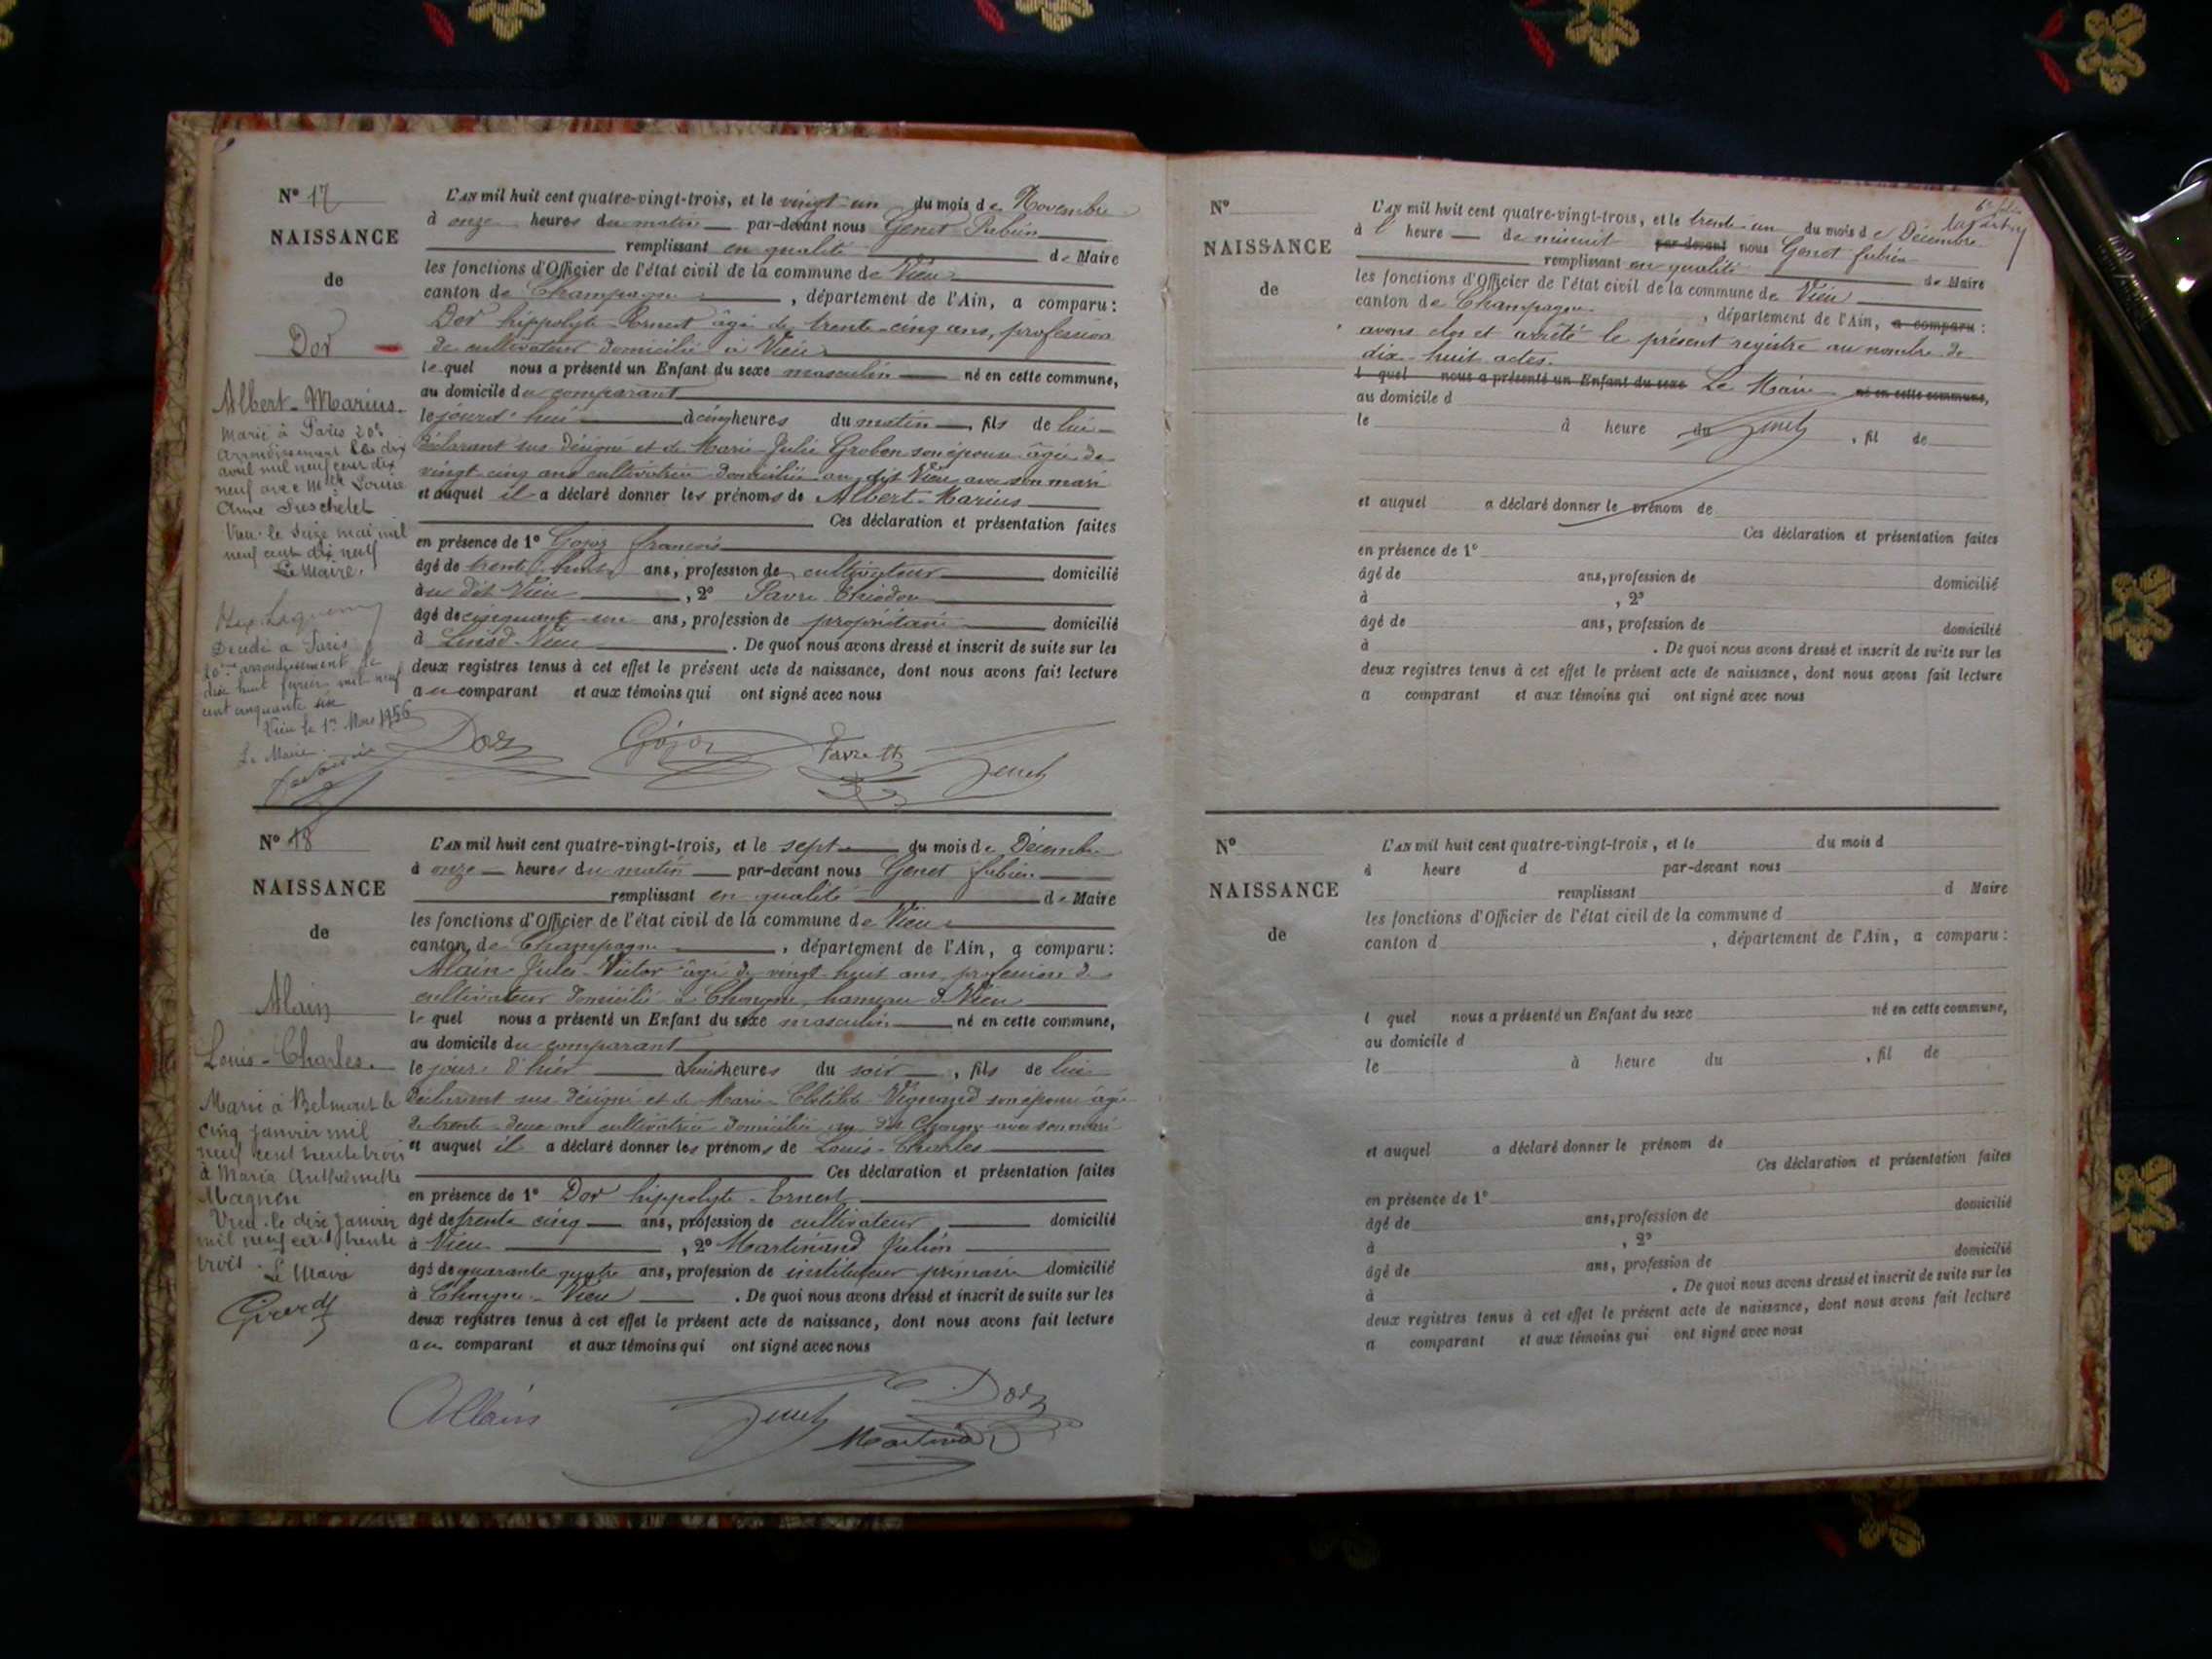 N° 17
NAISSANCE
de
Dor
Albert-Marius.
Marié à Paris 20e
arrondissement le dix
avril mil neuf cent dix
neuf avec Mlle Louise
Anne
Vieu le seize mai mil
neuf cent dix neuf
Le Maire.
Décédé à Paris
20ème arrondissement le
dix huit février mil neuf
cent cinquante six
Vieu le 1er Mars 1956
Le Maire.
L'AN mil huit cent quatre-vingt-trois, et le vingt-un du mois de Novembre
à onze heures du matin par-devant nous Genet Fabien
remplissant en qualité de Maire
les fonctions d'Officier de l'état civil de la commune de Vieu
canton de Champagne, département de l'Ain, a comparu:
Dor hippolyte Ernest âgé de trente-cinq ans, profession
de cultivateur domicilié à Vieu
lequel nous a présenté un Enfant du sexe masculin né en cette commune,
au domicile du comparant
le jourd'hui à cinq heures du matin, fils de lui
déclarant sus désigné et de Marie-Julie Grobon son épouse âgée de
vingt cinq ans cultivatrice domiciliée au dit Vieu avec son mari
et auquel il a déclaré donner les prénoms de Albert-Marius
Ces déclaration et présentation faites
en présence de 1° Gojoz françois
âgé de trente ans, profession de cultivateur domicilié
au dit Vieu, 2°
âgé de cinquante un ans, profession de propriétaire domicilié
à Vieu. De quoi nous avons dressé et inscrit de suite sur les
deux registres tenus à cet effet le présent acte de naissance, dont nous avons fait lecture
au comparant et aux témoins qui ont signé avec nous
Dor Gojoz Favre Th Genet
N° 18
NAISSANCE
de
Alain
Louis-Charles.
Marié à Belmont le
cinq janvier mil
neuf cent trente trois
à Maria Anthelmette
Magnin
Vieu le dix janvier
mil neuf cent trente
trois.
Le Maire
L'AN mil huit cent quatre-vingt-trois, et le sept du mois de Décembre
à onze heures du matin par-devant nous Genet fabien
remplissant en qualité de Maire
les fonctions d'Officier de l'état civil de la commune de Vieu
canton de Champagne, département de l'Ain, a comparu:
Alain Jules-Victor âgé de vingt-huit ans, profession de
cultivateur domicilié à Chongne, hameau d Vieu
lequel nous a présenté un Enfant du sexe masculin né en cette commune,
au domicile du comparant
le jour d'hier à huit heures du soir, fils de lui
déclarant sus désigné et de Marie Clotilde son épouse âgée
de trente-deux ans cultivatrice domiciliée au dit Chongne avec son mari
et auquel il a déclaré donner les prénoms de Louis-Charles
Ces déclaration et présentation faites
en présence de 1° Dor hippolyte-Ernest
âgé de trente cinq ans, profession de cultivateur domicilié
à Vieu, 2° Martinand Julien
âgé de quarante quatre ans, profession de instituteur primaire domicilié
à Chongne-Vieu. De quoi nous avons dressé et inscrit de suite sur les
deux registres tenus à cet effet le présent acte de naissance, dont nous avons fait lecture
au comparant et aux témoins qui ont signé avec nous
Allain Genet Dor
Martinand
N°
NAISSANCE
de
L'AN mil huit cent quatre-vingt-trois, et le trente-un du mois de Décembre
à l heure de minuit par-devant nous Genet fabien
remplissant en qualité de Maire
les fonctions d'Officier de l'état civil de la commune de Vieu
canton de Champagne, département de l'Ain, a comparu:
avons clos et arrêté le présent registre au nombre de
dix-huit actes.
l quel nous a présenté un Enfant du sexe Le Maire né en cette commune,
au domicile d
le à heure du Genet, fil de
et auquel a déclaré donner le prénom de
Ces déclaration et présentation faites
en présence de 1°
âgé de ans, profession de domicilié
à , 2°
âgé de ans, profession de domicilié
à . De quoi nous avons dressé et inscrit de suite sur les
deux registres tenus à cet effet le présent acte de naissance, dont nous avons fait lecture
a comparant et aux témoins qui ont signé avec nous
N°
NAISSANCE
de
L'AN mil huit cent quatre-vingt-trois, et le du mois d
à heure d par-devant nous
remplissant d Maire
les fonctions d'Officier de l'état civil de la commune d
canton d , département de l'Ain, a comparu:
l quel nous a présenté un Enfant du sexe né en cette commune,
au domicile d
le à heure du , fil de
et auquel a déclaré donner le prénom de
Ces déclaration et présentation faites
en présence de 1°
âgé de ans, profession de domicilié
à , 2°
âgé de ans, profession de domicilié
à . De quoi nous avons dressé et inscrit de suite sur les
deux registres tenus à cet effet le présent acte de naissance, dont nous avons fait lecture
a comparant et aux témoins qui ont signé avec nous